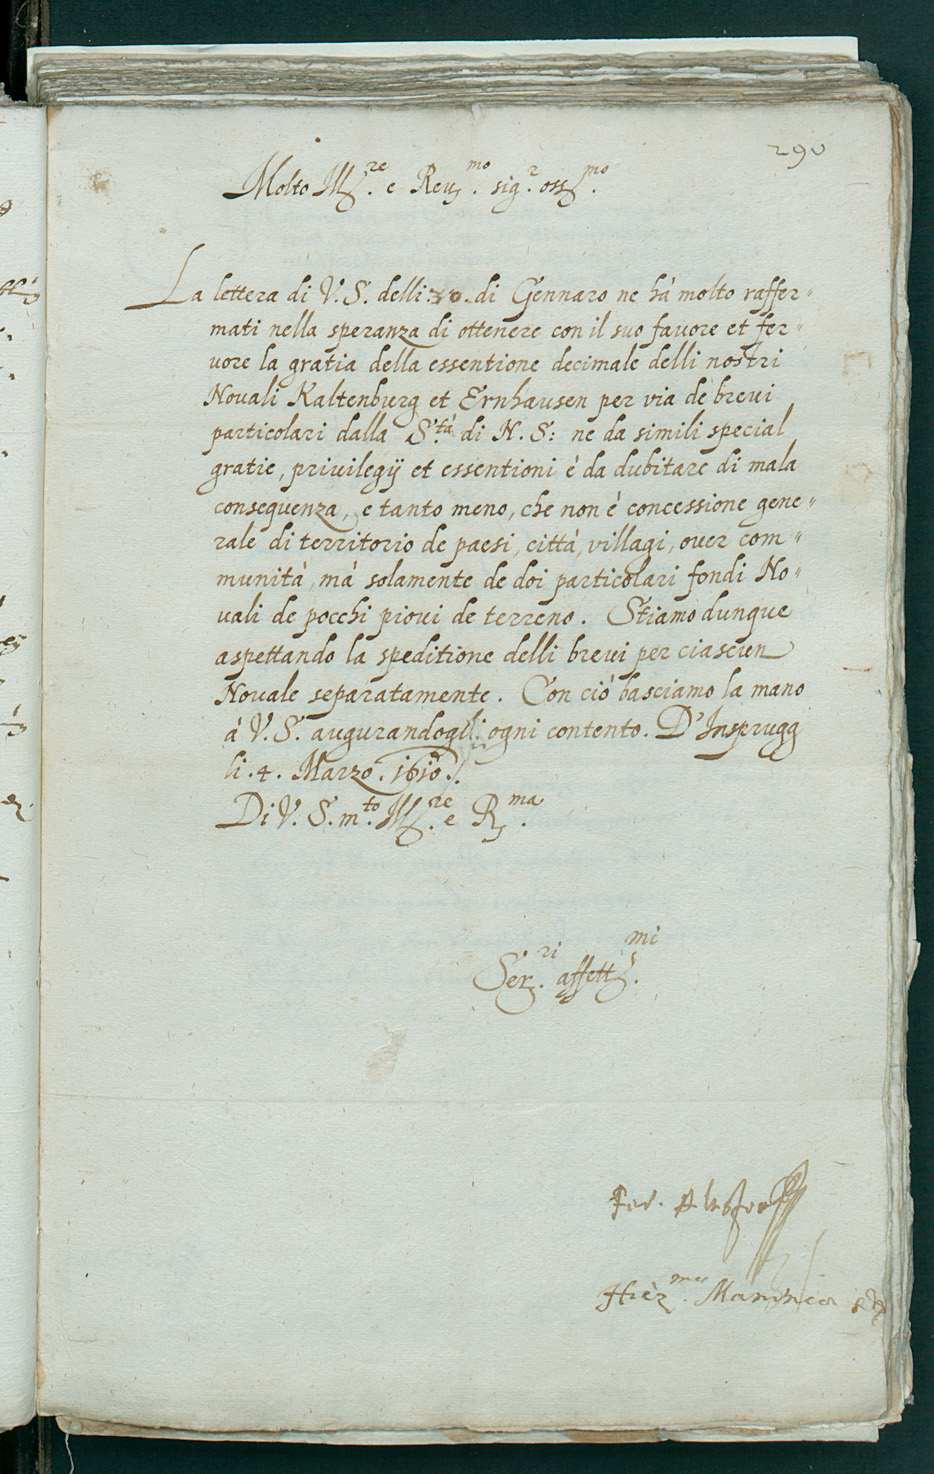 290
Molto Ill.re e Reu.mo sig.r oss.mo
La lettera di V. S. delli .30. di Gennaro ne há molto raffer-
mati nella speranza di ottenere con il suo fauore et fer-
uore la gratia della essentione decimale delli nostri
Nouali Kaltenburg et Ernhausen per via de breui
particolari dalla S.tá di N. S: ne da simili special
gratie, priuilegij et essentioni è da dubitare di mala
conseguenza, e tanto meno, che non è concessione gene-
rale di territorio de paesi, cittá, villagi, ouer com-
munitá, má solamente de doi particolari fondi No-
uali de pocchi pioui de terreno. Stiamo dunque
aspettando la speditione delli breui per ciascun
Nouale separatamente. Con ció basciamo la mano
á V. S. augurandogli ogni contento. D'Insprugg
li .4. Marzo. 1610.
Di V. S. m.to Ill.re e R.ma
Ser.ri affett.mi
Hier.mus Manincor